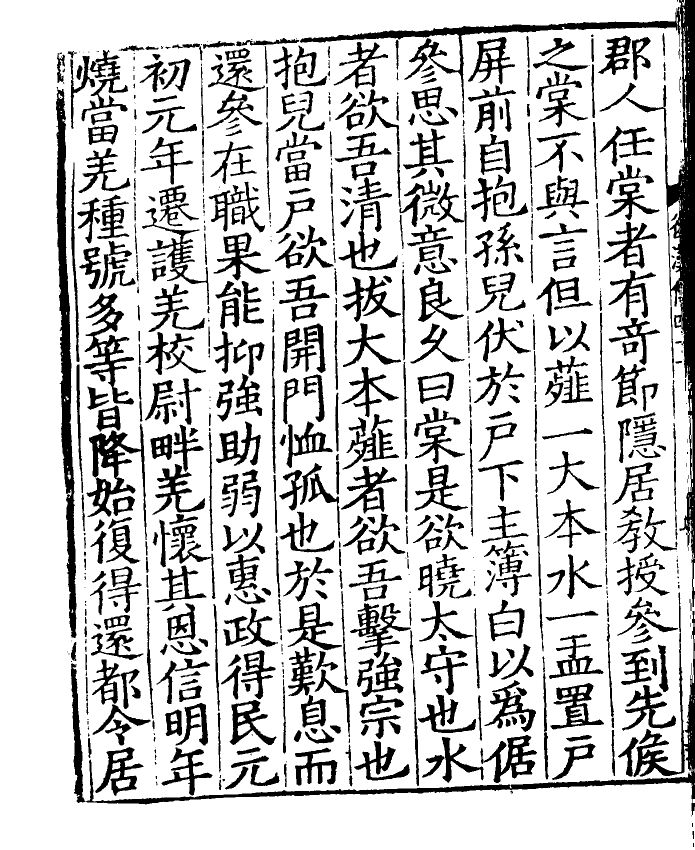 郡人任棠者有奇節隱居敎授參到先候
之棠不與言但以薤一大本水一盂置戶
屏前自抱孫兒伏於戶下主簿白以爲倨
參思其微意良久曰棠是欲曉太守也水
者欲吾清也拔大本薤者欲吾擊強宗也
抱兒當戶欲吾開門恤孤也於是歎息而
還參在職果能抑強助弱以惠政得民元
初元年遷護羌校尉畔羌懷其恩信明年
燒當羌種號多等皆降始復得還都令居